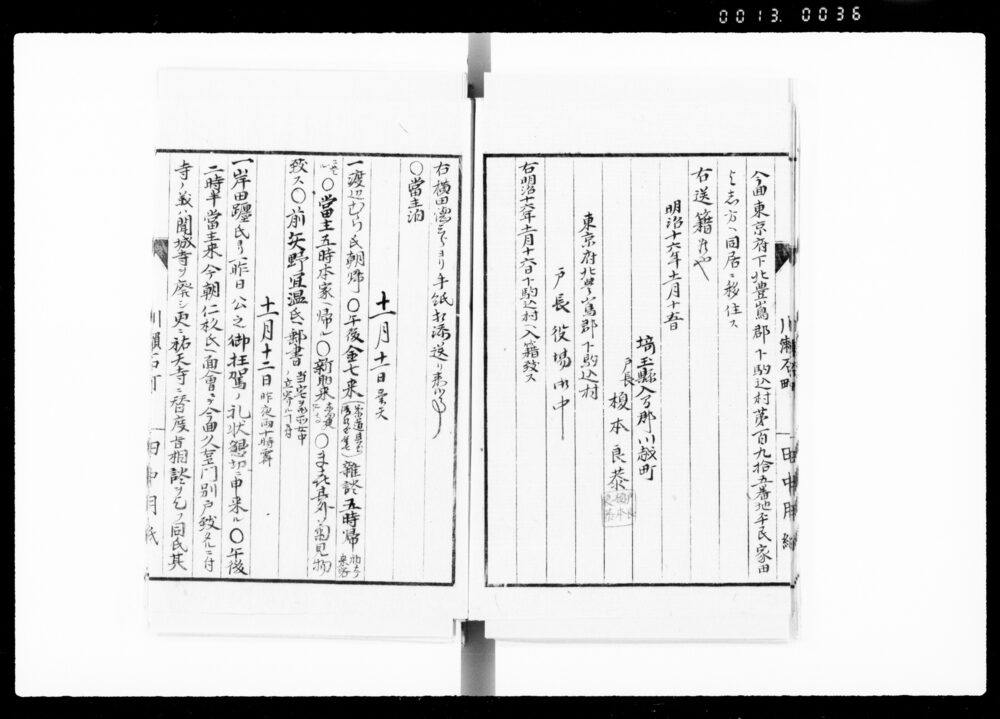 0013 0036
今回東京府下北豊嶌郡下駒込村第百九拾五番地平民家田
よし方へ同居ニ移住ス
右送籍候也
明治十六年十一月十五日
埼玉縣入間郡川越町
戸長 榎本良恭
東京府北豊嶌郡下駒込村
戸長役場御中
右明治十六年十一月十六日下駒込村へ入籍致ス
川瀬石町
田中用紙
右横田より手紙相添送り
〇當主泊
十一月十一日曇天
一渡辺むら氏朝帰〇午後金七来 雜談五時帰
〇當主五時本家へ帰ル〇新聞来〇見物
致ス〇前矢野宜温氏へ郵書
十一月十二日 昨夜雨十時霽
一岸田躔氏ヨリ昨日公之御枉駕ノ礼状懇切ニ申来ル〇午後
二時半當主来今朝仁杉氏へ面會シテ今回久左ヱ門別戸致候ニ付
寺ノ義ハ聞城寺ヲ廃シ更ニ祐天寺ニ替度旨相談ヲセシノ同氏其
川瀬石町
田中用紙